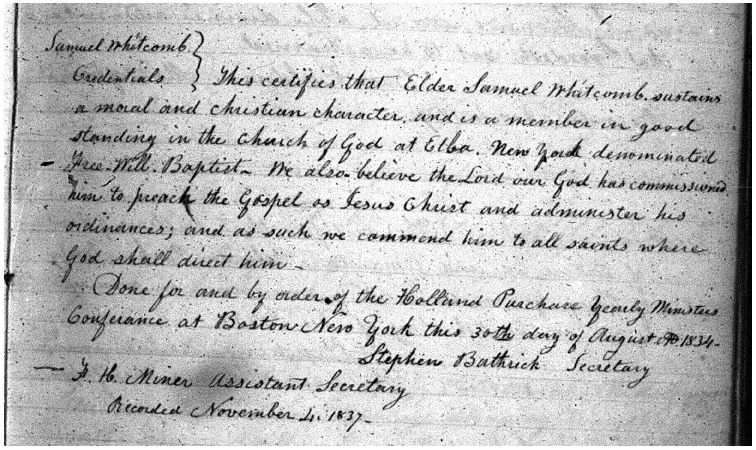 Samuel Whitcomb
Credentials } This certifies that Elder Samuel Whitcomb sustains
a moral and christian character, and is a member in good
standing in the Church of God at Elba, New York denominated
Free-Will. Baptist - We also believe the Lord our God has commissioned
him to preach the Gospel os Jesus Christ and administer his
ordinances; and as such we commend him to all saints where
God shall direct him -
Done for and by order of the Holland Purchase Yearly Ministers
Conferance at Boston New York this 30th day of August AD 1834-
Stephen Bathrick Secretary
H. Miner Assistant Secretary
Recorded November 4. 1837-